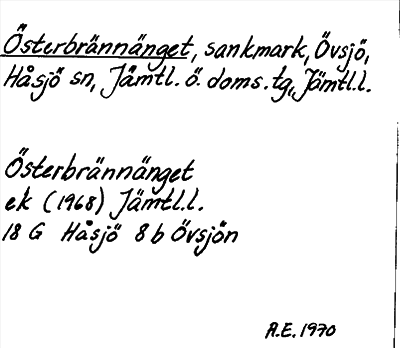 Österbrännänget, sankmark, Övsjö,
Håsjö sn, Jämtl. ö. doms. tg., Jämtl.l.
Österbrännänget
ek (1968) Jämtl.l.
18 G Håsjö 8 b Övsjön
A.E. 1970